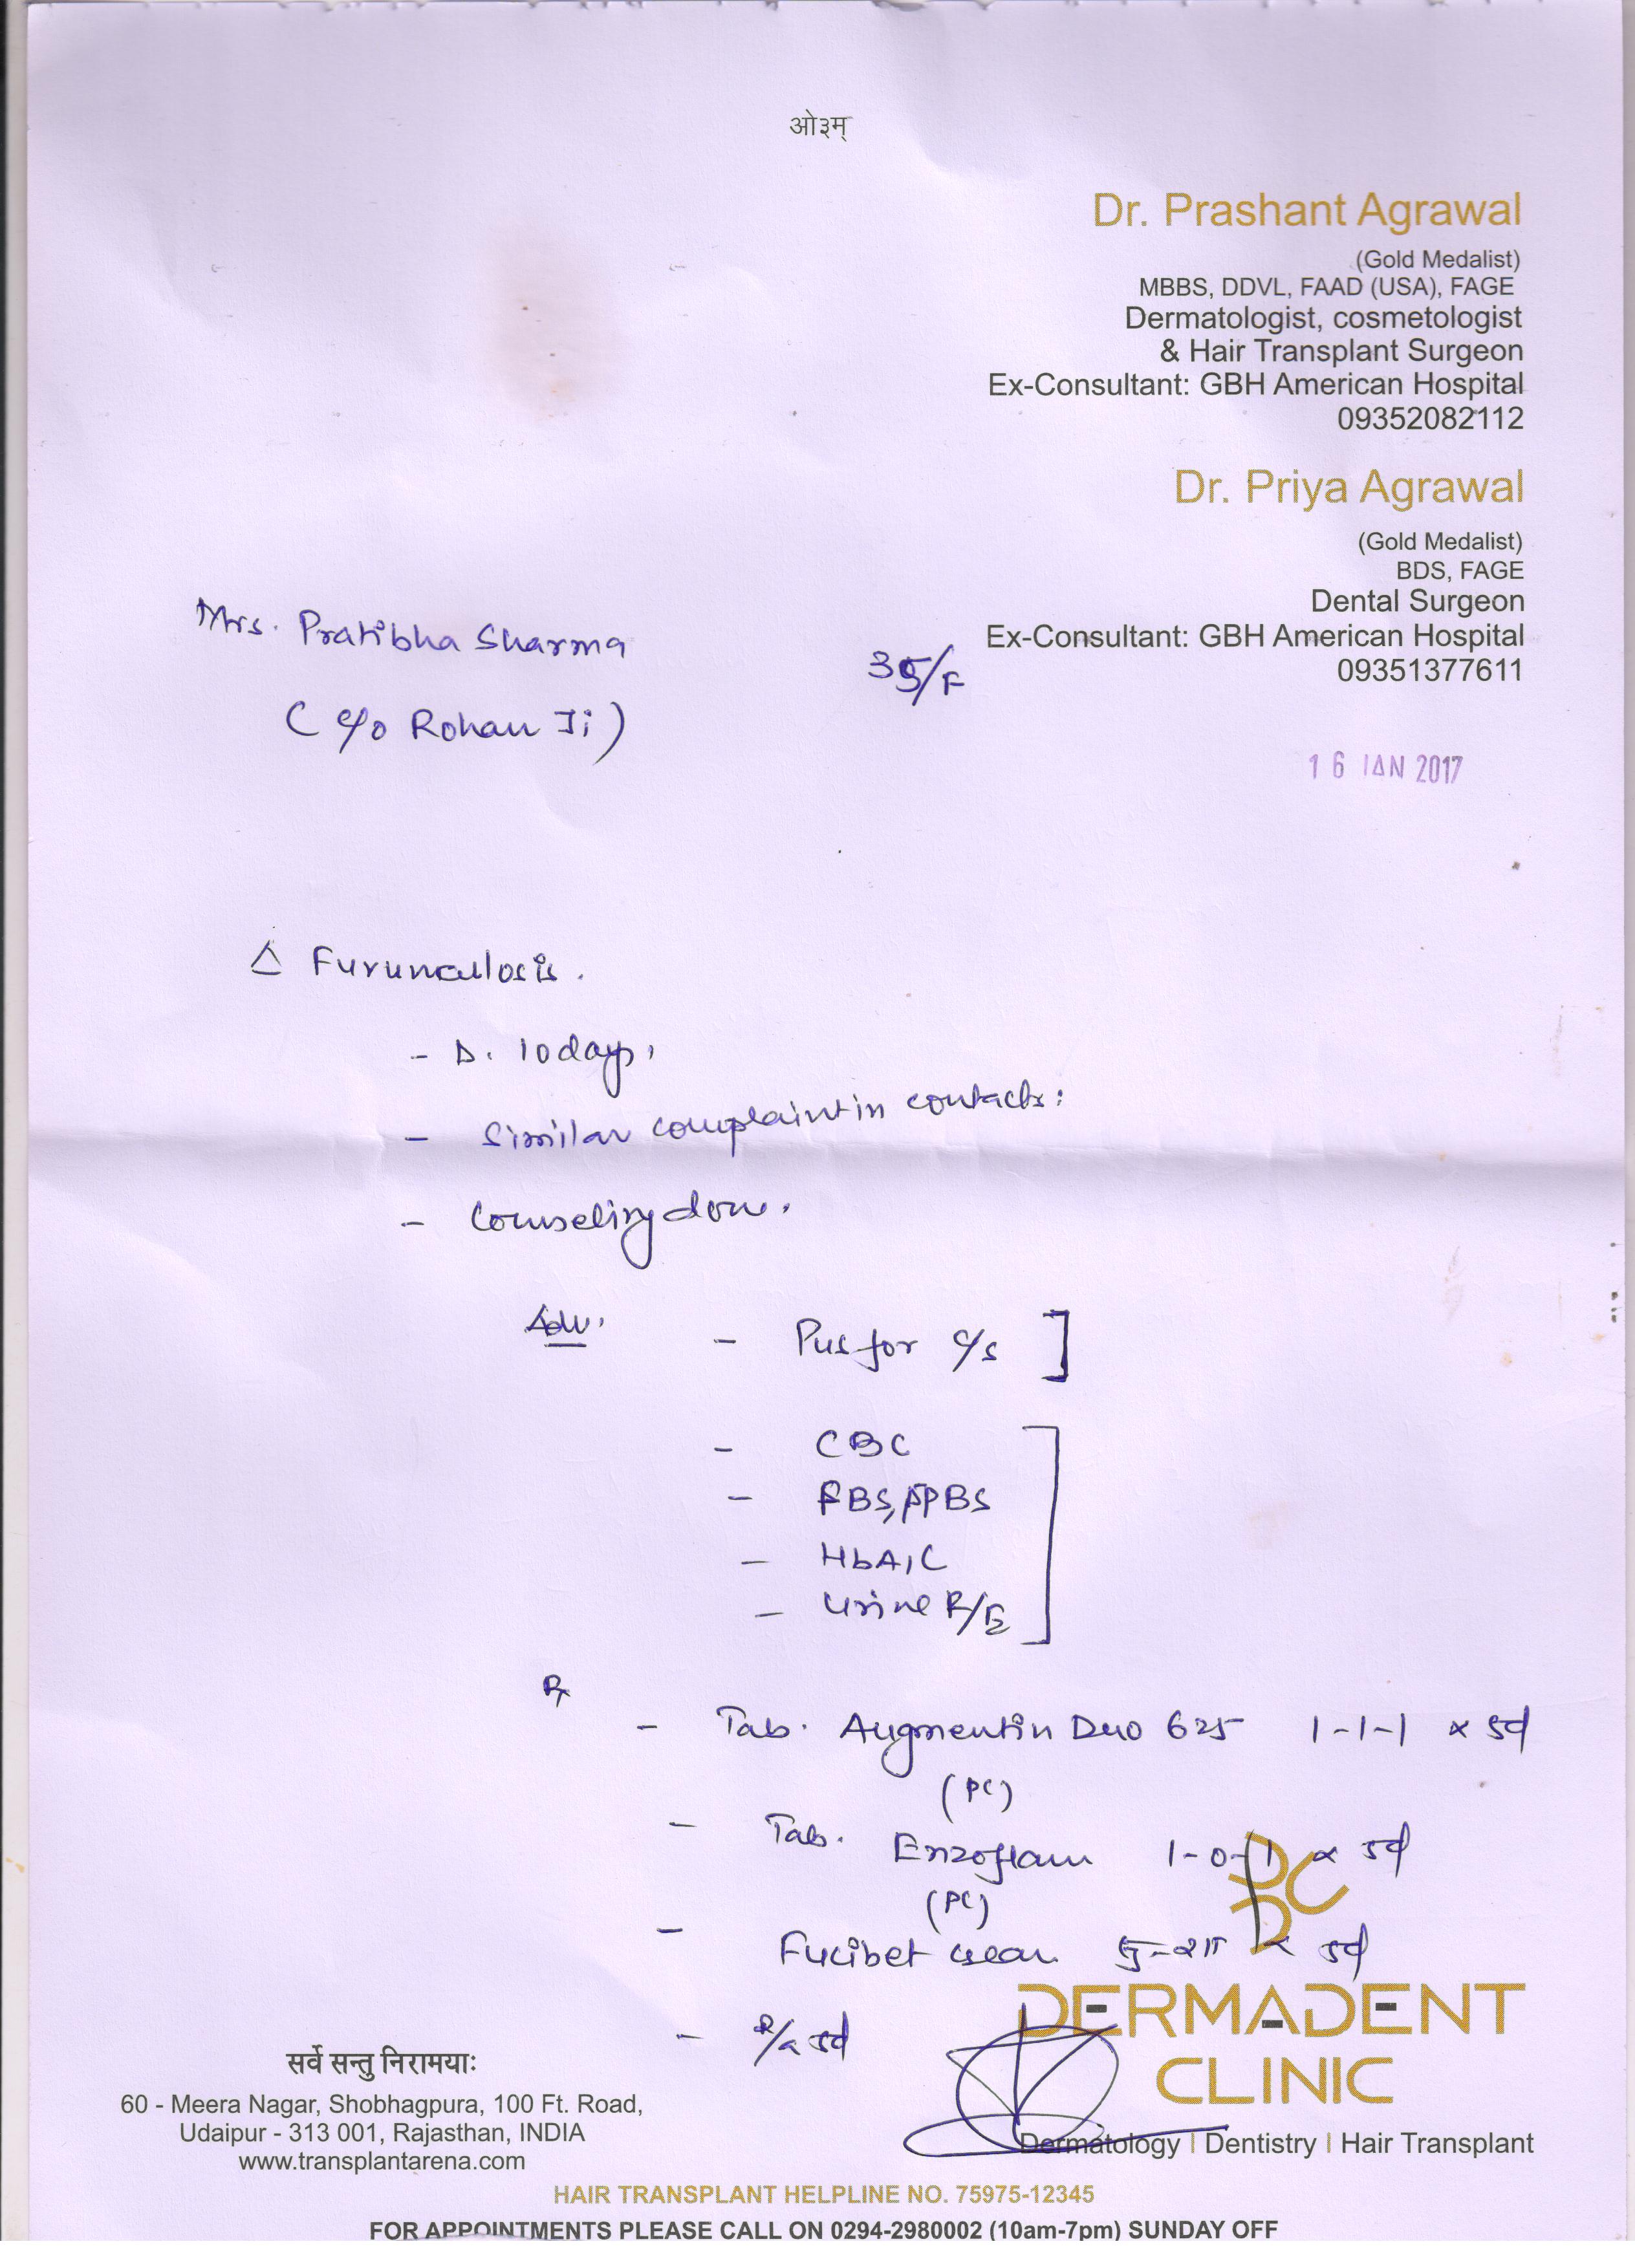 ओ३म्
Dr. Prashant Agrawal
(Gold Medalist)
MBBS, DDVL, FAAD (USA), FAGE
Dermatologist, cosmetologist
& Hair Transplant Surgeon
Ex-Consultant: GBH American Hospital
09352082112
Dr. Priya Agrawal
(Gold Medalist)
BDS, FAGE
Dental Surgeon
Ex-Consultant: GBH American Hospital
09351377611
Mrs. Pratibha Sharma
35/F
(c/o Rohan Ji)
16 JAN 2017
Δ Furunculosis.
- D. 10 days,
- Similar complaint in contacts:
- Counseling done.
Adv. - Pus for c/s ]
- CBC
- FBS, PPBS
- HbA1C
- Urine R/E
Rx
- Tab. Augmentin Duo 625 1-1-1 x 5d
(PC)
- Tab. Enzoflam 1-0-1 x 5d
(PC)
- Fucibet cream x 5d
- R/a 5d
DERMADENT
CLINIC
Dermatology | Dentistry | Hair Transplant
सर्वे सन्तु निरामयाः
60 - Meera Nagar, Shobhagpura, 100 Ft. Road,
Udaipur - 313 001, Rajasthan, INDIA
www.transplantarena.com
HAIR TRANSPLANT HELPLINE NO. 75975-12345
FOR APPOINTMENTS PLEASE CALL ON 0294-2980002 (10am-7pm) SUNDAY OFF